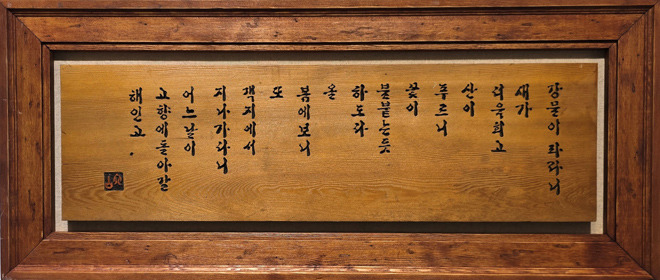 강물이 파라니
새가
더욱희고
산이
푸르니
꽃이
불붙는듯
하도다
올
봄에보니
또
객지에서
지나가나니
어느날이
고향에돌아갈
해인고.